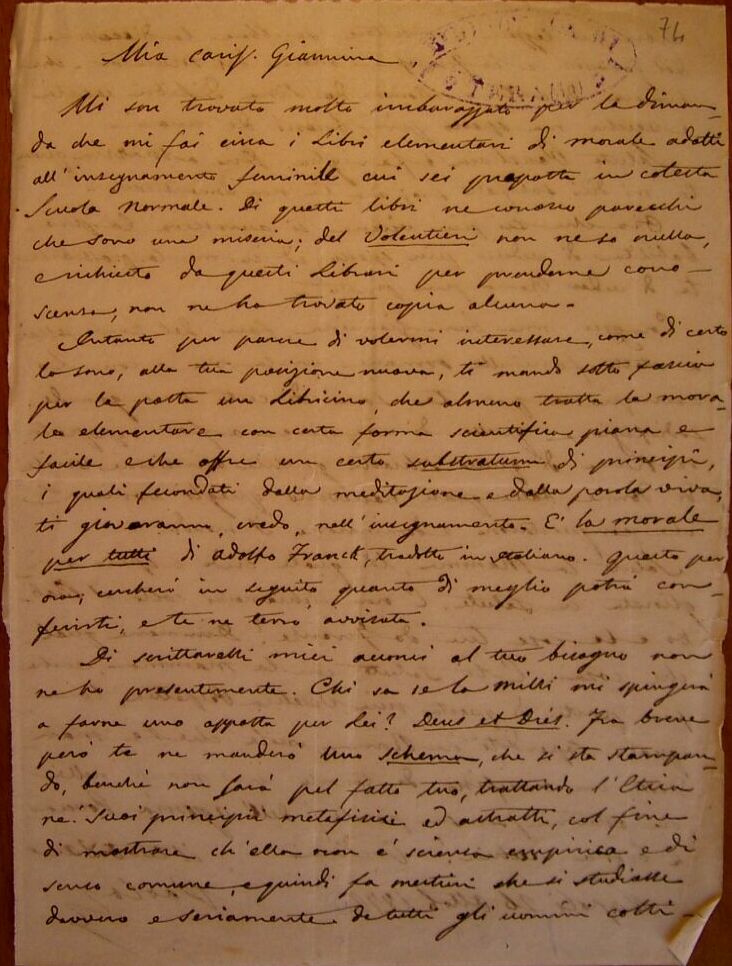 74
Mia cariss. Giannina
Mi son trovato molto imbarazzato per la diman-
da che mi fai circa i Libri elementari di morale adatti
all'insegnamento feminile cui sei preposta in cotesta
Scuola Normale. Di questi libri ne conosco parecchi
che sono una miseria; del Volentieri non ne so nulla,
e richiesto da questi Librari per prenderne cono-
scenza, non ne ho trovato copia alcuna.
Intanto per parere di volermi interessare, come di certo
lo sono, alla tua posizione nuova, ti mando sotto fascia
per la posta un Libricino, che almeno tratta la mora-
le elementare con certa forma scientifica piana e
facile e che offre un certo substratum di principii,
i quali fecondati dalla meditazione e dalla parola viva,
ti gioveranno, credo, nell'insegnamento. E' la morale
per tutti di Adolfo Franck, tradotto in italiano. Questo per
ora; cercherò in seguito quanto di meglio potrà con-
ferirti, e te ne terrò avvisata.
Di scrittarelli miei acconci al tuo bisogno non
ne ho presentemente. Chi sa se la Milli mi spingerà
a farne uno apposta per Lei? Deus et Dies. Fra breve
però te ne manderò uno schema, che si sta stampan-
do, benchè non sarà pel fatto tuo, trattando l'Etica
ne' suoi principii metafisici ed astratti, col fine
di mostrare ch'ella non è scienza empirica e di
senso comune, e quindi fa mestieri che si studiasse
davvero e seriamente da tutti gli uomini colti.